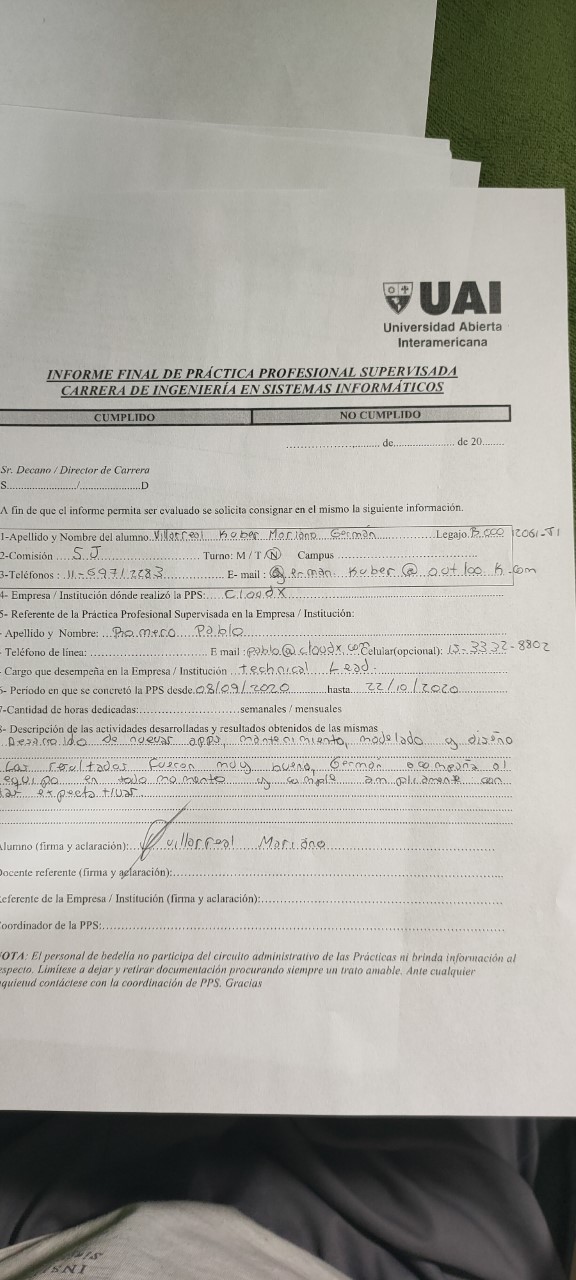 UAI
Universidad Abierta
Interamericana
INFORME FINAL DE PRÁCTICA PROFESIONAL SUPERVISADA
CARRERA DE INGENIERÍA EN SISTEMAS INFORMÁTICOS
CUMPLIDO NO CUMPLIDO
............................ de...................... de 20........
Sr. Decano / Director de Carrera
S......................./......................D
A fin de que el informe permita ser evaluado se solicita consignar en el mismo la siguiente información.
1-Apellido y Nombre del alumno. Villarreal Kuber Mariano Germán Legajo. 12061-T1
2-Comisión 5 J Turno: M / T / N Campus
3-Teléfonos : E- mail : german.kuber@outlook.com
4- Empresa / Institución dónde realizó la PPS: Cloudx
5- Referente de la Práctica Profesional Supervisada en la Empresa / Institución:
- Apellido y Nombre: Romero Pablo
- Teléfono de línea: E mail : Celular(opcional): 15-3332-8802
- Cargo que desempeña en Empresa / Institución technical Lead.
6- Periodo en que se concretó la PPS desde 08/09/2020 hasta 22/10/2020
7-Cantidad de horas dedicadas: semanales / mensuales
8- Descripción de las actividades desarrolladas y resultados obtenidos de las mismas
de nuevas apps, mantenimiento, modelado y diseño
Los resultados fueron muy bueno, Germán acompaña al
equipo en todo momento y cumple ampliamente con
expectativas
Alumno (firma y aclaración): Villarreal Mariano
Docente referente (firma y aclaración):
Referente de la Empresa / Institución (firma y aclaración):
Coordinador de la PPS:
NOTA: El personal de bedelia no participa del circuito administrativo de las Prácticas ni brinda información al
respecto. Limítese a dejar y retirar documentación procurando siempre un trato amable. Ante cualquier
inquietud contáctese con la coordinación de PPS. Gracias